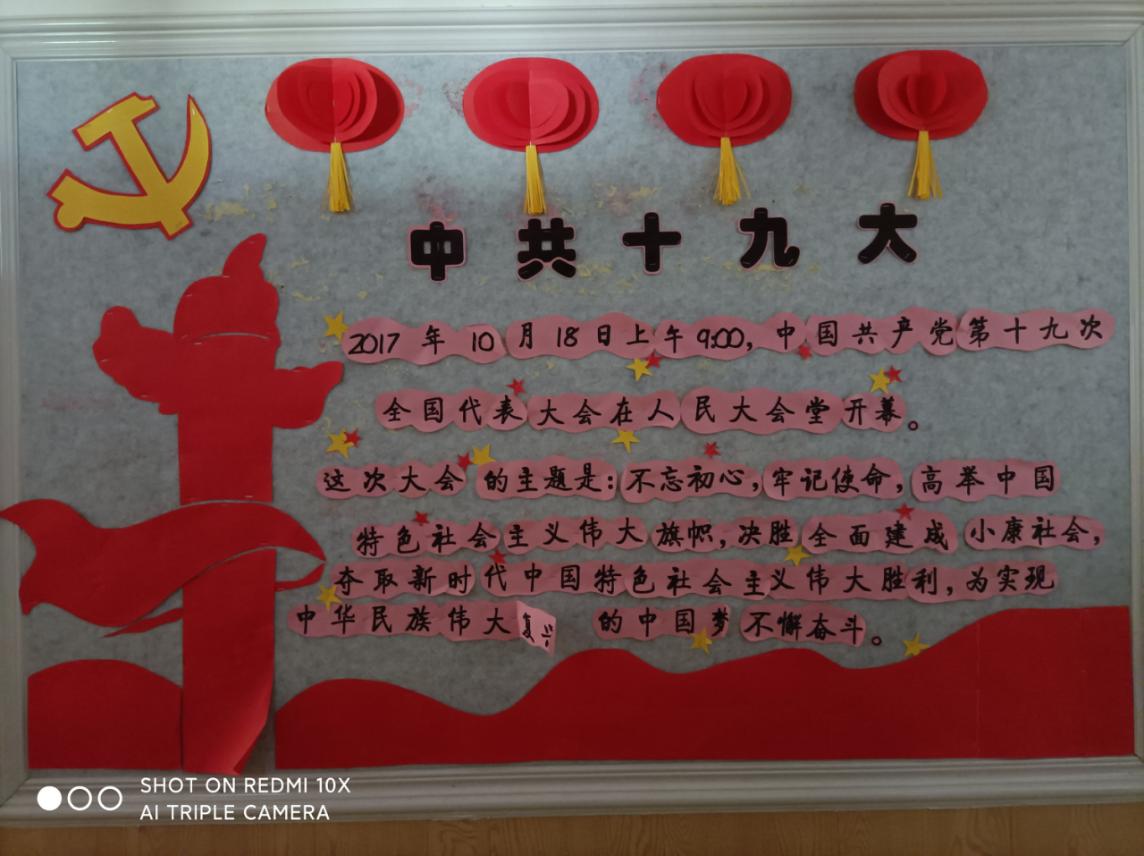 中共十九大
2017年10月18日上午9:00,中国共产党第十九次
全国代表大会在人民大会堂开幕。
这次大会的主题是:不忘初心,牢记使命,高举中国
特色社会主义伟大旗帜,决胜全面建成小康社会,
夺取新时代中国特色社会主义伟大胜利,为实现
中华民族伟大复兴的中国梦不懈奋斗。
SHOT ON REDMI 10X
AI TRIPLE CAMERA